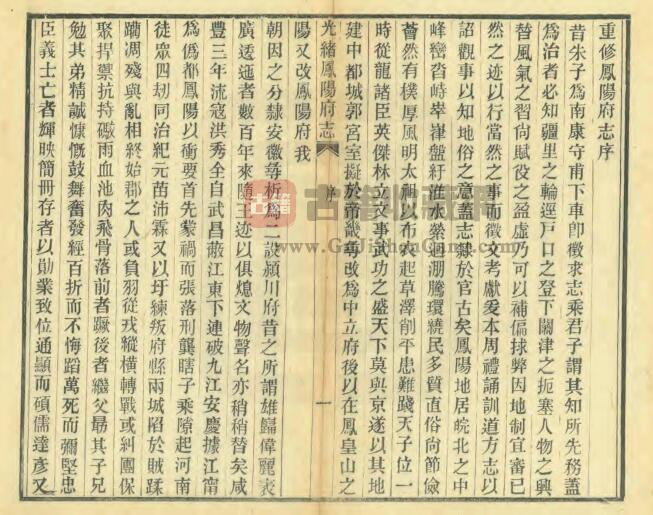 重修鳳陽府志序
昔朱子為南康守甫下車卽徵求志乘君子謂其知所先務蓋
為治者必知疆里之輪逞戸口之登下關津之扼塞人物之興
替風氣之習尙賦役之盈虛乃可以補偏捄弊因地制宜審已
然之迹以行當然之事而徵文考獻爰本周禮誦訓道方志以
詔觀事以知地俗之意蓋志隸於官古矣鳳陽地居皖北之中
峰巒沓峙崒嵂盤紆淮水縈迴淜騰環繞民多質直俗尙節儉
薈然有樸厚風明太祖以布衣起草澤削平患難踐天子位一
時從龍諸臣英傑林立文事武功之盛天下莫與京遂以其地
建中都城郭宮室擬於帝畿尋改為中立府後以在鳳皇山之
光緒鳳陽府志
序
一
陽又改鳳陽府我
朝因之分隸安徽尋析為二設潁川府昔之所謂雄歸偉麗袤
廣迻逋者數百年來隨王迹以俱熄文物聲名亦稍稍替矣咸
豐三年流寇洪秀全自武昌蔽江東下連破九江安慶據江甯
為偽都鳳陽以衝要首先蒙禍而張落刑龔瞎子乘隙起河南
徒眾四刧同治紀元苗沛霖又以圩練叛府縣兩城陷於賊蹂
躪凋殘與亂相終始郡之人或負羽從戎縱橫轉戰或糾團保
聚捍禦抗持礮雨血池肉飛骨落前者蹶後者繼父勗其子兄
勉其弟精誠慷慨鼓舞奮發經百折而不悔蹈萬死而彌堅忠
臣義士亡者輝映簡冊存者以勛業致位通顯而碩儒達彥又
古籍收藏网
GuJiShouCang.Com
古籍